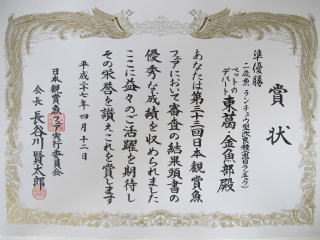 賞状
準優勝
二歳魚 ランチュウ型改良種當百ランチュウ
マットのデパート
東葛金魚部殿
あなたは第三十三回日本観賞魚
フェアにおいて審査の結果頭書の
優秀な成績を収められました
ここに益々のご活躍を期待し
その栄誉を讃えこれを賞します
平成二十七年四月十二日
日本観賞魚フェア実行委員会
会長 長谷川賢太郎